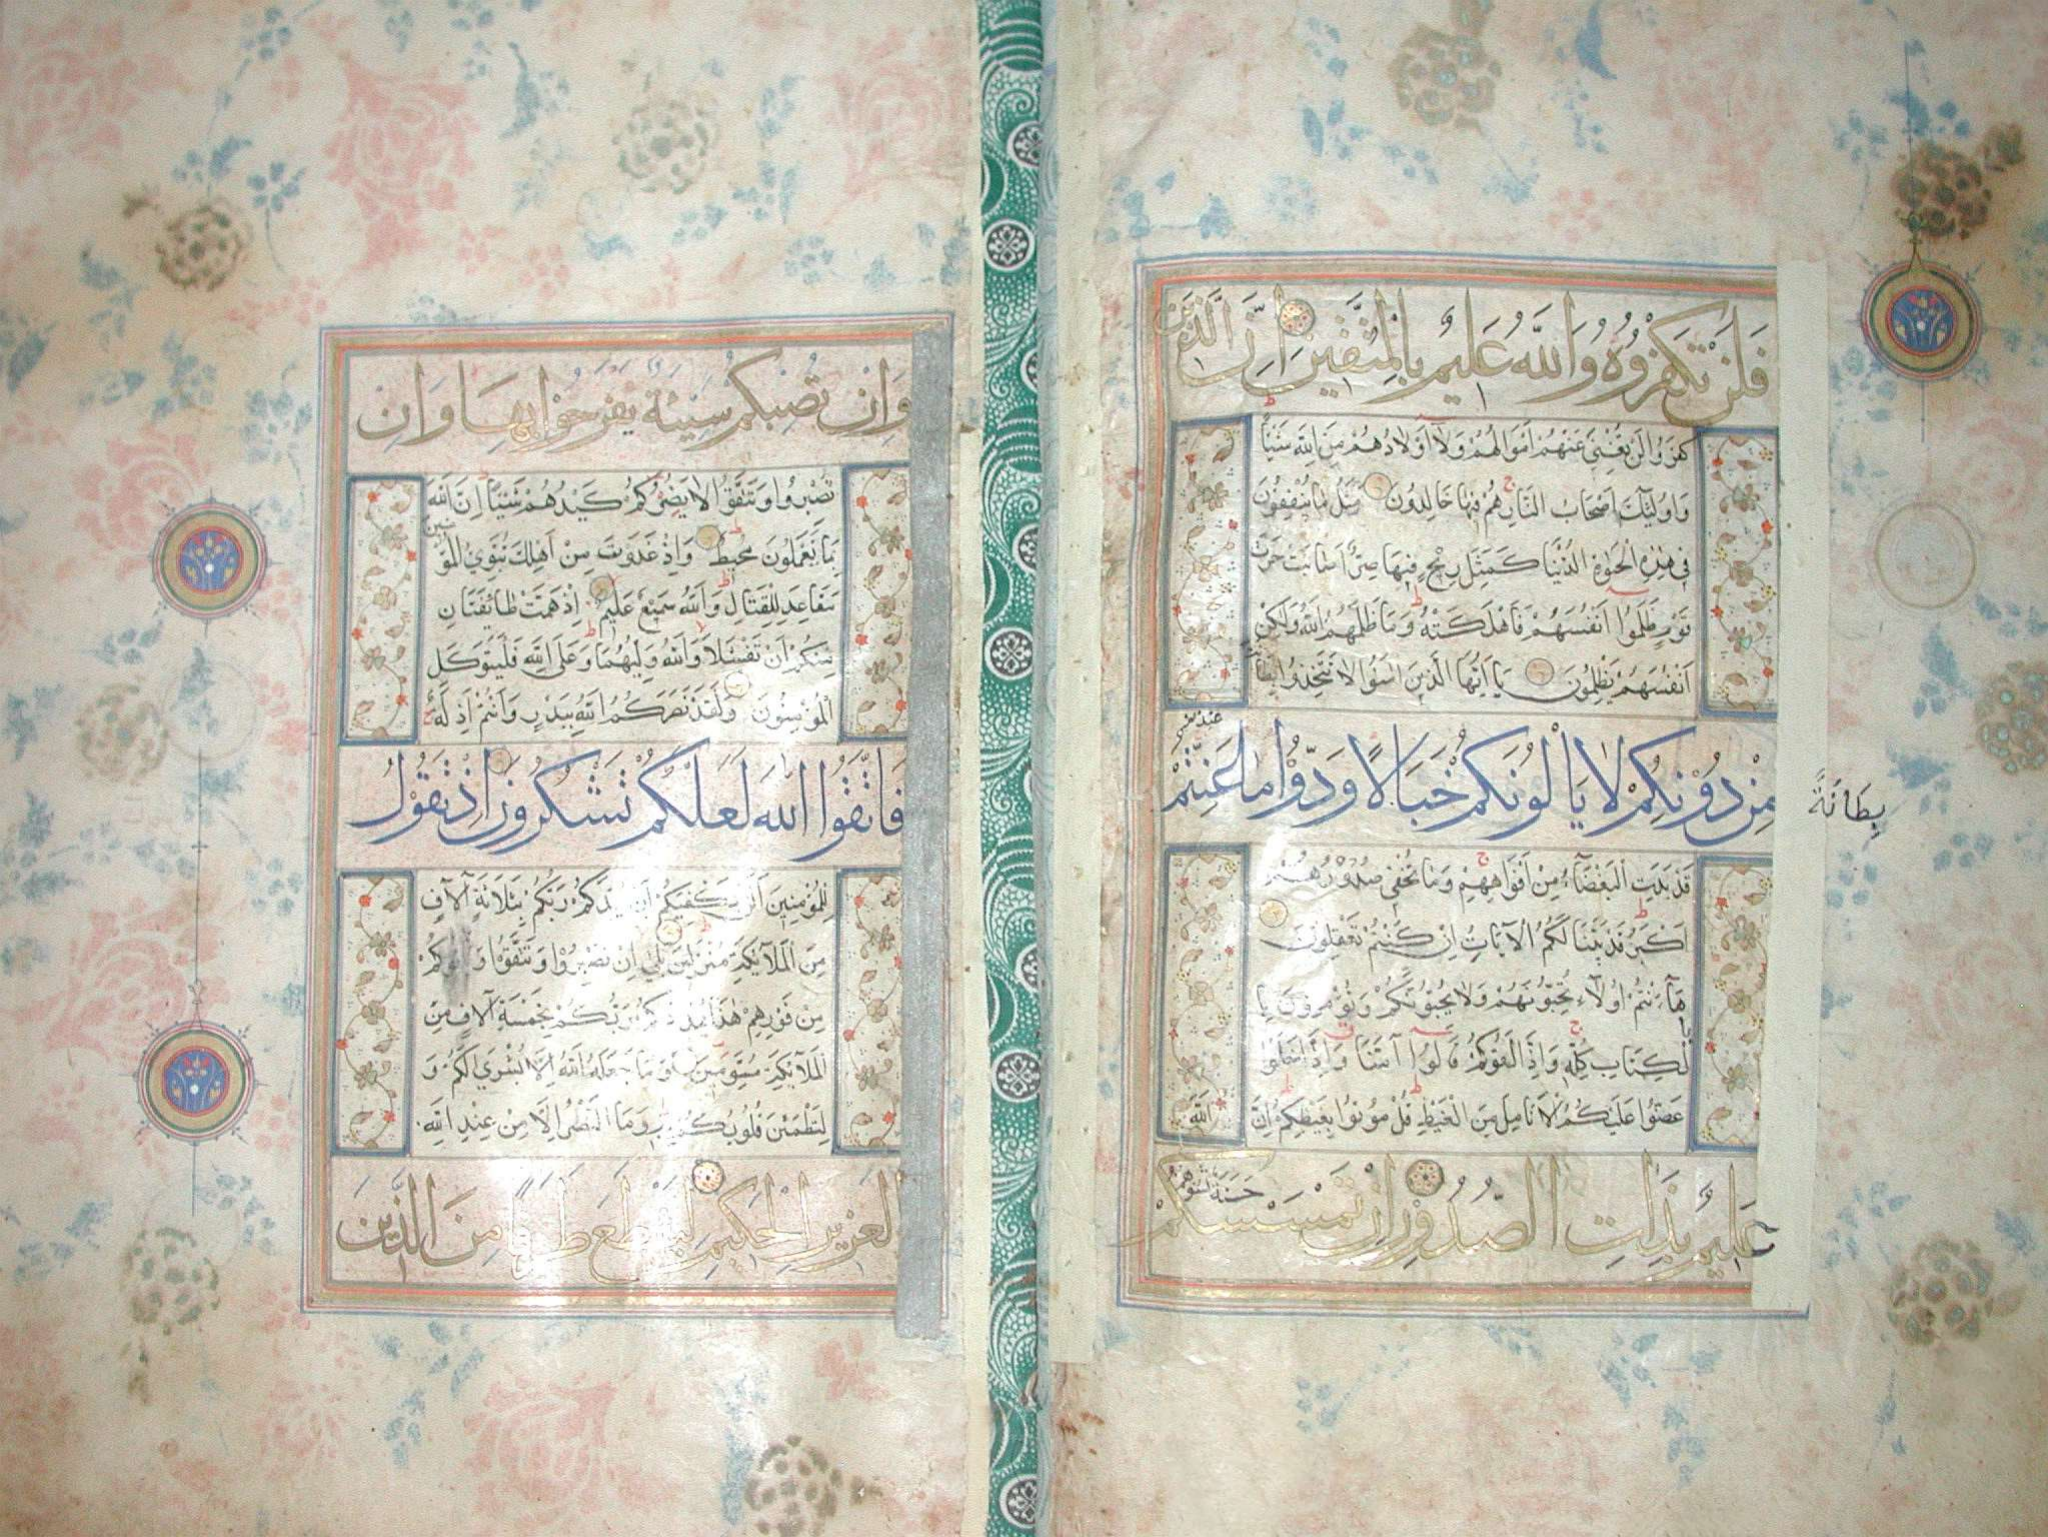 فَلَنْ تُكْفَرُوهُ وَاللَّهُ عَلِيمٌ بِالْمُتَّقِينَ اِنَّ الَّذِينَ
كَفَرُوا لَنْ تُغْنِيَ عَنْهُمْ اَمْوَالُهُمْ وَلَا اَوْلَادُهُمْ مِنَ اللَّهِ شَيْئًا
وَاُولَئِكَ اَصْحَابُ النَّارِ هُمْ فِيهَا خَالِدُونَ مَثَلُ مَا يُنْفِقُونَ
فِي هَذِهِ الْحَيٰوةِ الدُّنْيَا كَمَثَلِ رِيحٍ فِيهَا صِرٌّ اَصَابَتْ حَرْثَ
قَوْمٍ ظَلَمُوا اَنْفُسَهُمْ فَاَهْلَكَتْهُ وَمَا ظَلَمَهُمُ اللَّهُ وَلَكِنْ
اَنْفُسَهُمْ يَظْلِمُونَ يَا اَيُّهَا الَّذِينَ اٰمَنُوا لَا تَتَّخِذُوا بِطَانَةً
مِنْ دُونِكُمْ لَا يَاْلُونَكُمْ خَبَالًا وَدُّوا مَا عَنِتُّمْ
بِطَانَةً
قَدْ بَدَتِ الْبَغْضَاءُ مِنْ اَفْوَاهِهِمْ وَمَا تُخْفِي صُدُورُهُمْ
اَكْبَرُ قَدْ بَيَّنَّا لَكُمُ الْاٰيَاتِ اِنْ كُنْتُمْ تَعْقِلُونَ
هَآ اَنْتُمْ اُولَآءِ تُحِبُّونَهُمْ وَلَا يُحِبُّونَكُمْ وَتُؤْمِنُونَ بِا
لْكِتَابِ كُلِّهِ وَاِذَا لَقُوكُمْ قَالُوا اٰمَنَّا وَاِذَا خَلَوْا
عَضُّوا عَلَيْكُمُ الْاَنَامِلَ مِنَ الْغَيْظِ قُلْ مُوتُوا بِغَيْظِكُمْ اِنَّ اللَّهَ
عَلِيمٌ بِذَاتِ الصُّدُورِ اِنْ تَمْسَسْكُمْ حَسَنَةٌ تَسُؤْهُمْ
وَاِنْ تُصِبْكُمْ سَيِّئَةٌ يَفْرَحُوا بِهَا وَاِنْ
تَصْبِرُوا وَتَتَّقُوا لَا يَضُرُّكُمْ كَيْدُهُمْ شَيْئًا اِنَّ اللَّهَ
بِمَا يَعْمَلُونَ مُحِيطٌ وَاِذْ غَدَوْتَ مِنْ اَهْلِكَ تُبَوِّئُ الْمُؤْمِنِينَ
مَقَاعِدَ لِلْقِتَالِ وَاللَّهُ سَمِيعٌ عَلِيمٌ اِذْ هَمَّتْ طَائِفَتَانِ
مِنْكُمْ اَنْ تَفْشَلَا وَاللَّهُ وَلِيُّهُمَا وَعَلَى اللَّهِ فَلْيَتَوَكَّلِ
الْمُؤْمِنُونَ وَلَقَدْ نَصَرَكُمُ اللَّهُ بِبَدْرٍ وَاَنْتُمْ اَذِلَّةٌ
فَاتَّقُوا اللَّهَ لَعَلَّكُمْ تَشْكُرُونَ اِذْ تَقُولُ
لِلْمُؤْمِنِينَ اَلَنْ يَكْفِيَكُمْ اَنْ يُمِدَّكُمْ رَبُّكُمْ بِثَلَاثَةِ اٰلَافٍ
مِنَ الْمَلَآئِكَةِ مُنْزَلِينَ بَلَى اِنْ تَصْبِرُوا وَتَتَّقُوا وَيَاْتُوكُمْ
مِنْ فَوْرِهِمْ هٰذَا يُمْدِدْكُمْ رَبُّكُمْ بِخَمْسَةِ اٰلَافٍ مِنَ
الْمَلَآئِكَةِ مُسَوِّمِينَ وَمَا جَعَلَهُ اللَّهُ اِلَّا بُشْرَى لَكُمْ وَ
لِتَطْمَئِنَّ قُلُوبُكُمْ بِهِ وَمَا النَّصْرُ اِلَّا مِنْ عِنْدِ اللَّهِ
الْعَزِيزِ الْحَكِيمِ لِيَقْطَعَ طَرَفًا مِنَ الَّذِينَ